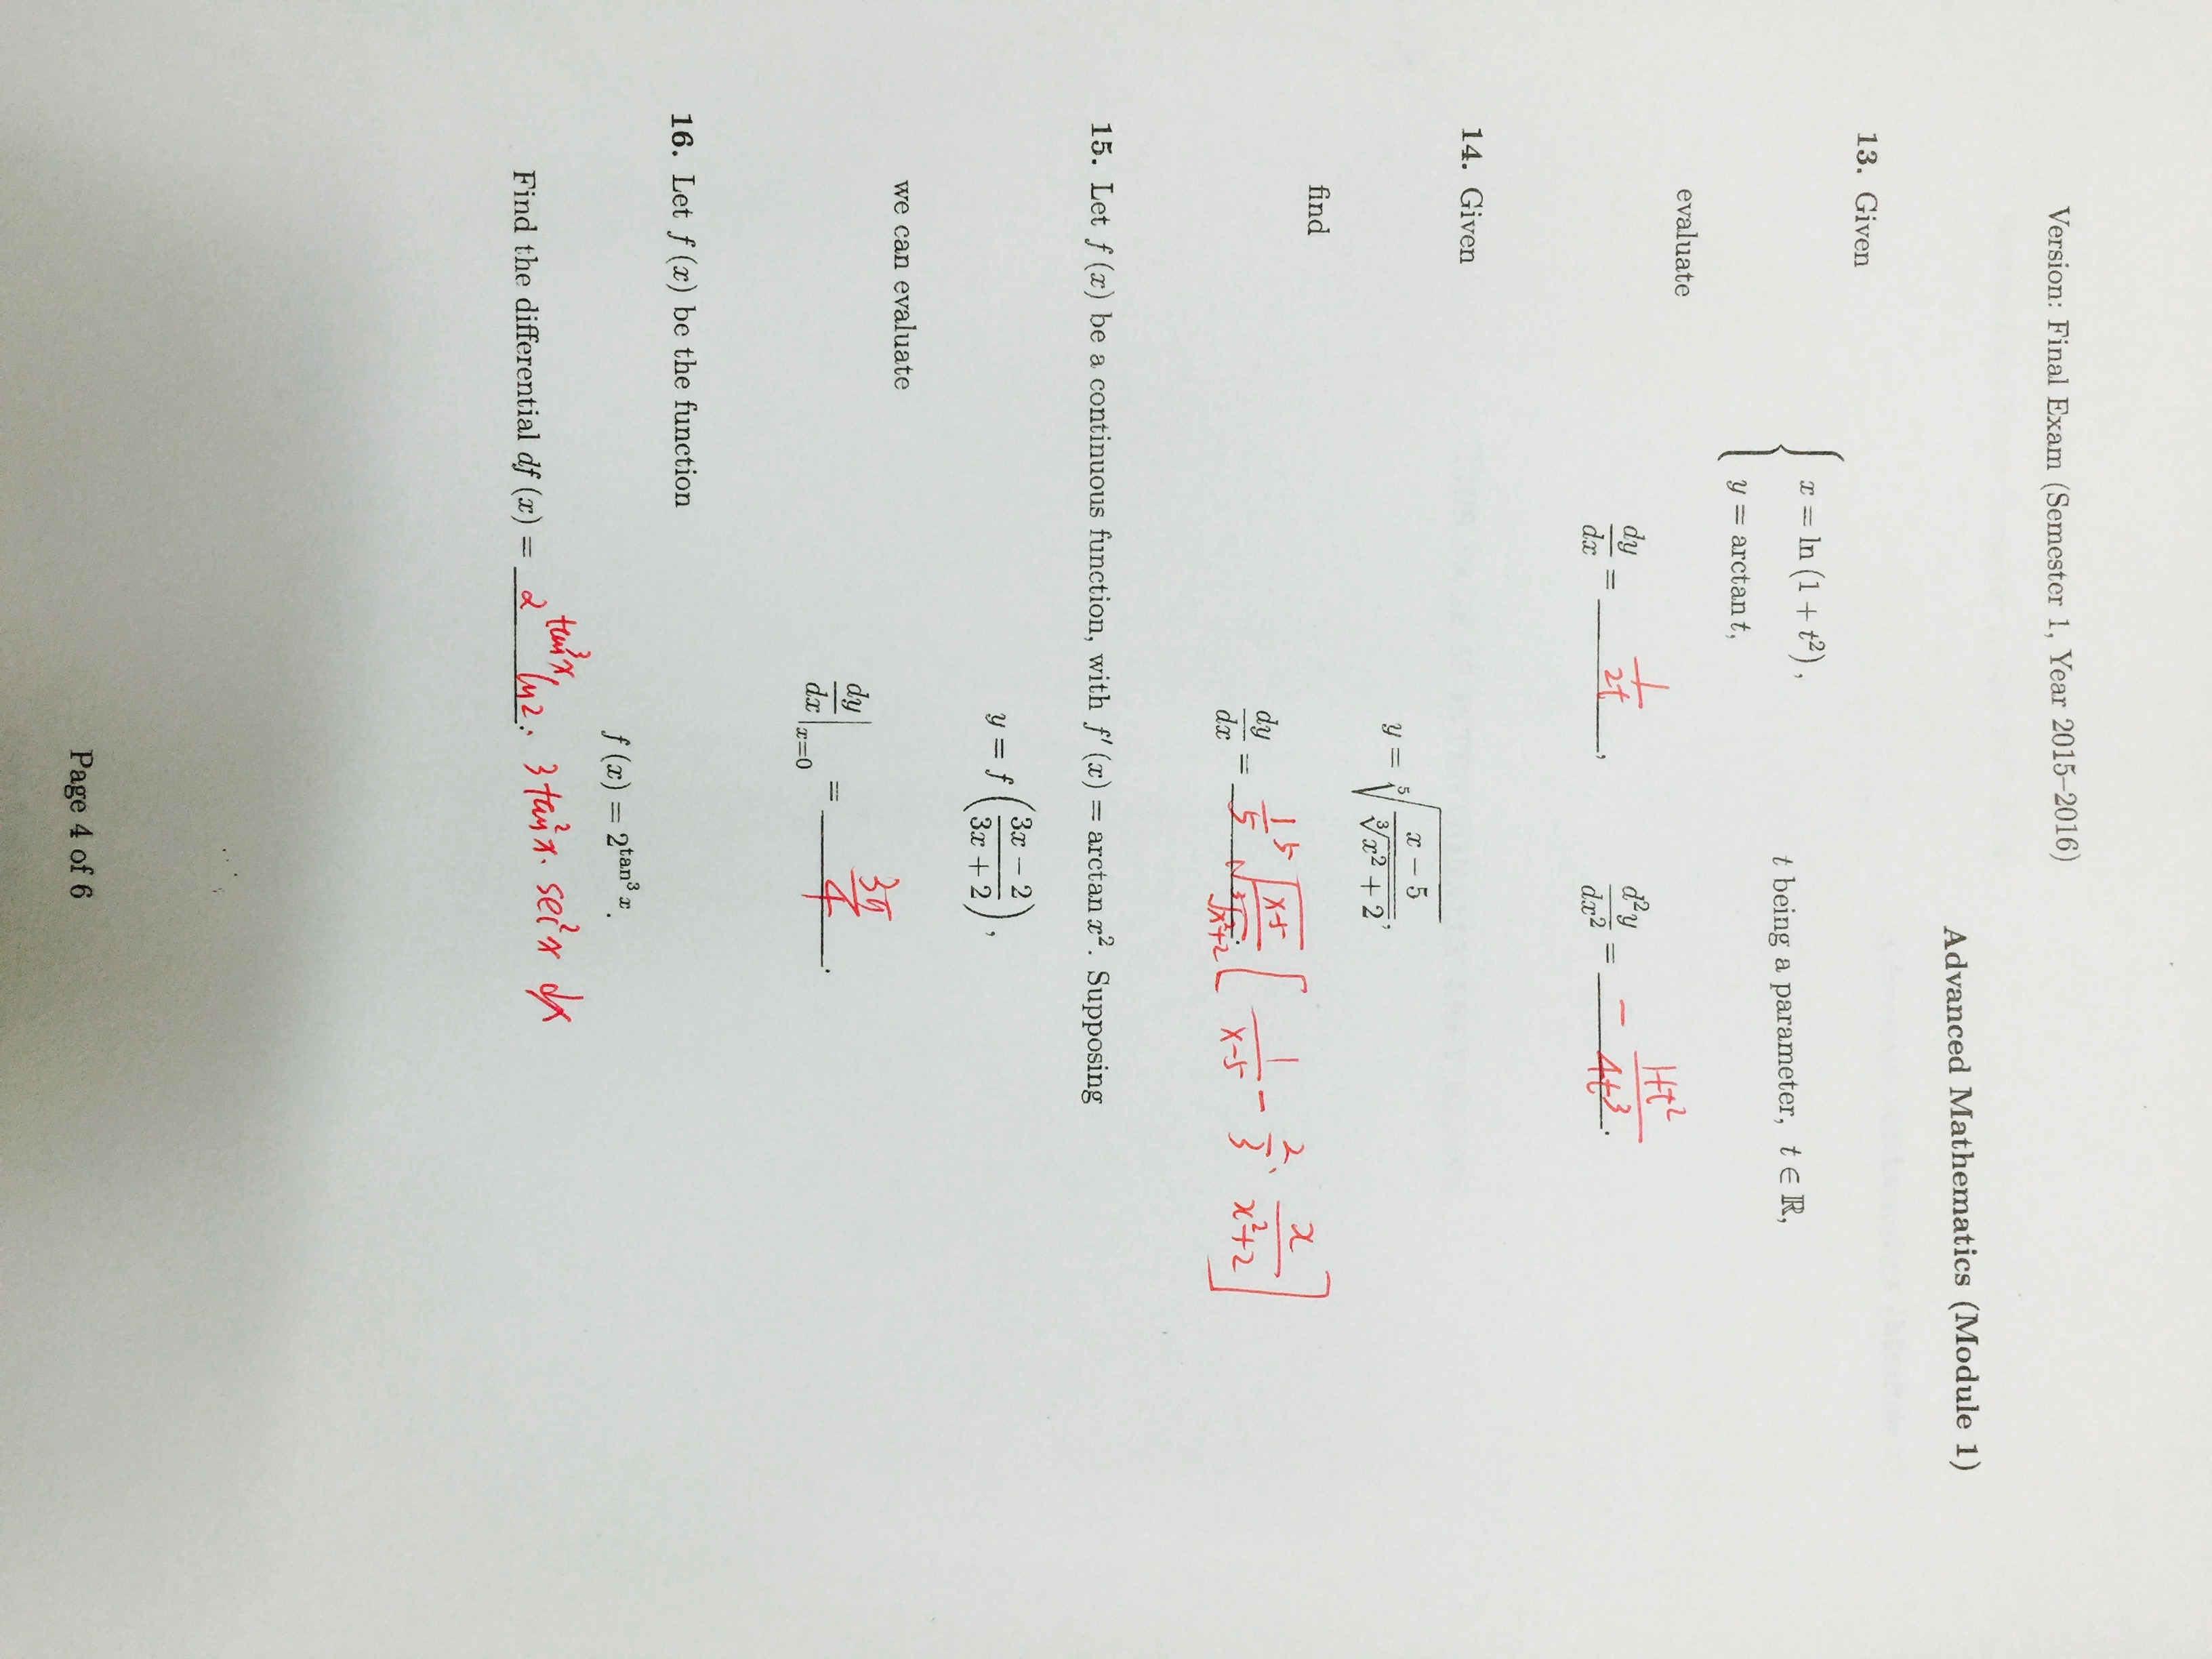 Version: Final Exam (Semester 1, Year 2015–2016)
Advanced Mathematics (Module 1)
13. Given
{ x = ln (1 + t²), y = arctan t, t being a parameter, t ∈ ℝ,
evaluate
dy/dx = 1/2t , d²y/dx² = - 1+t²/4t³ .
14. Given
y = ⁵√((x − 5)/∛(x² + 2)),
find
dy/dx = 1/5 ⁵√((x-5)/∛(x²+2)) . [ 1/(x-5) - 2/3 · x/(x²+2) ]
15. Let f (x) be a continuous function, with f′ (x) = arctan x². Supposing
y = f ((3x − 2)/(3x + 2)),
we can evaluate
dy/dx |x=0 = 3π/4 .
16. Let f (x) be the function
f (x) = 2^(tan³ x).
Find the differential df (x) = 2^(tan³x) ln2 . · 3 tan²x · sec²x dx
Page 4 of 6